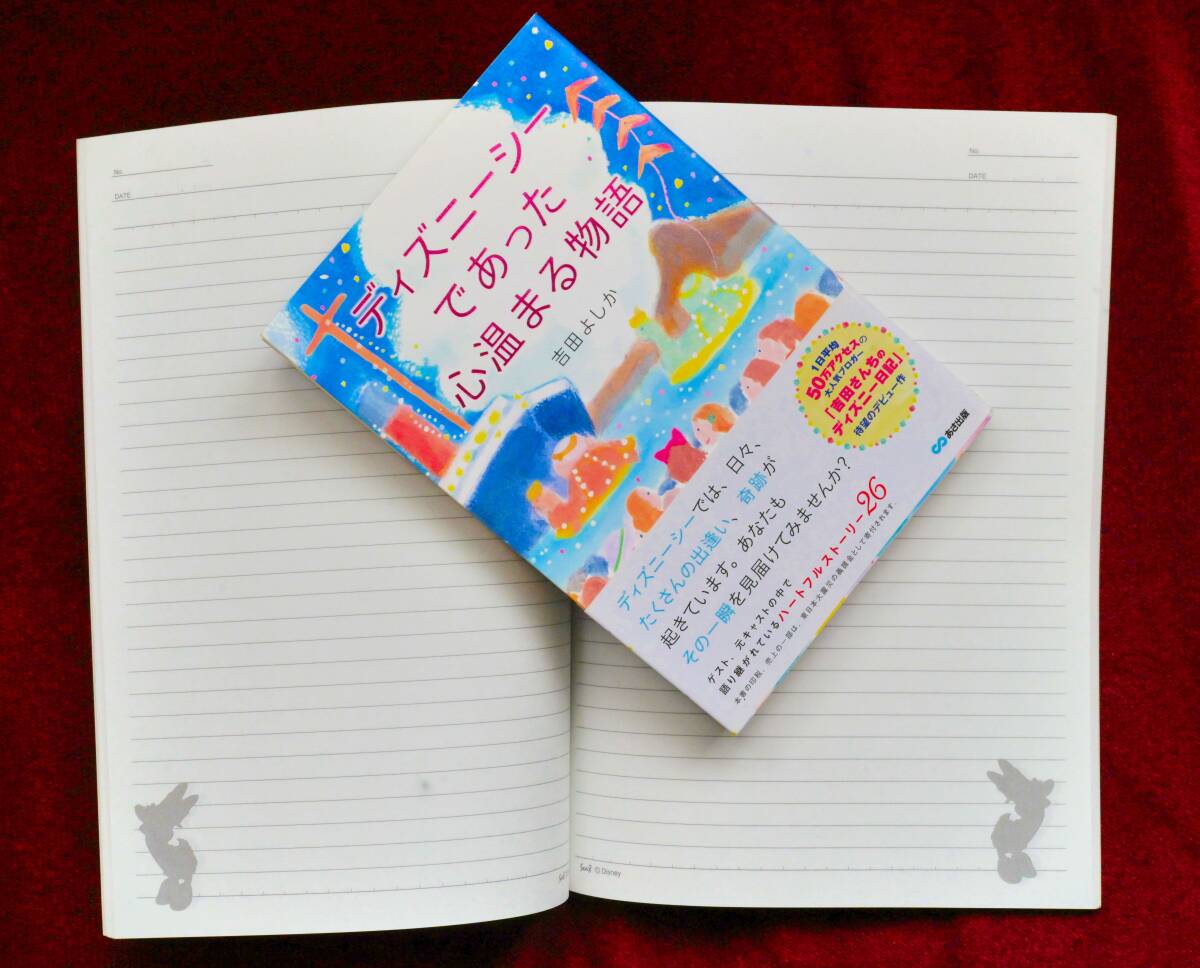 No.
DATE
No.
DATE
ディズニーシー
であった
心温まる物語
吉田よしか
1日平均
50万アクセスの
大人気ブロガー
「吉田さんちの
ディズニー日記」
待望のデビュー作
あさ出版
ディズニーシーでは、日々、
たくさんの出逢い、奇跡が
起きています。あなたも
その一瞬を見届けてみませんか?
ゲスト、元キャストの中で
語り継がれているハートフルストーリー26
本書の印税、売上の一部は、東日本大震災の義援金として寄付されます。
© Disney